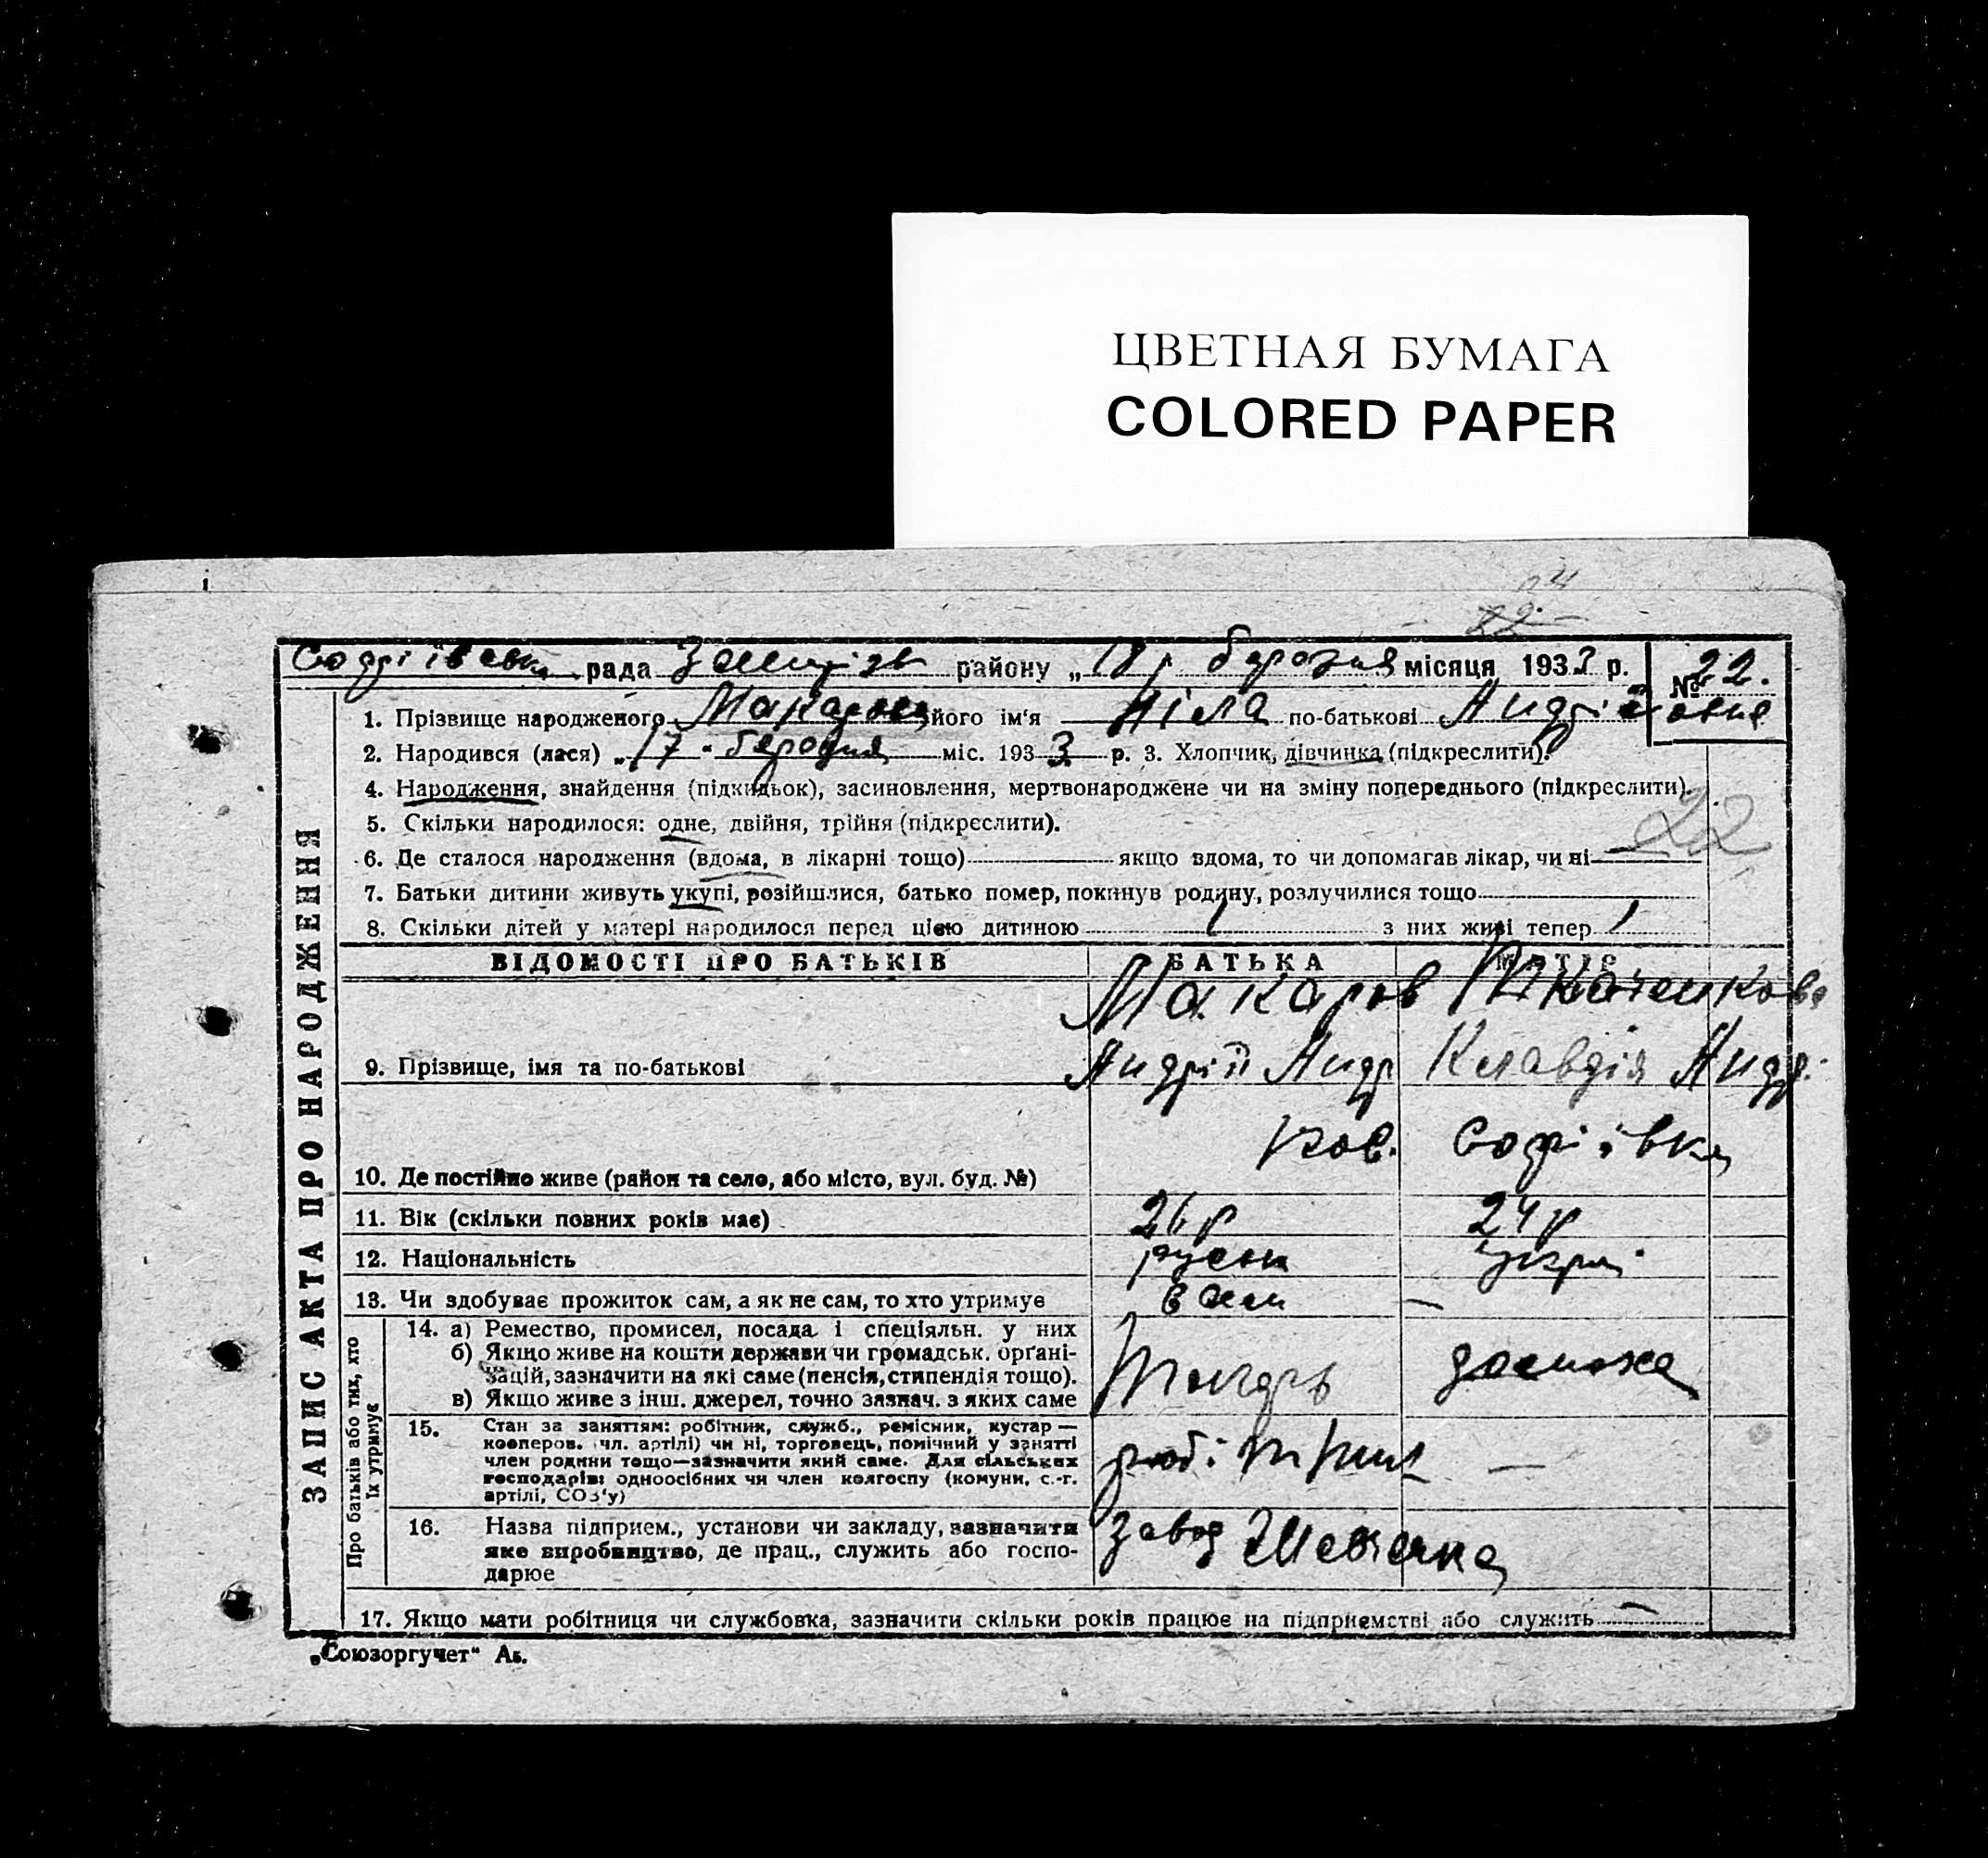 ЦВЕТНАЯ БУМАГА
COLORED PAPER
24
22
Софіївська рада району „18 р березня місяця 1933 р. № 22.
1. Прізвище народженого Макарова його ім'я Ніла по-батькові Андріївна
2. Народився (лася) „17" березня міс. 1933 р. 3. Хлопчик, дівчинка (підкреслити).
4. Народження, знайдення (підкидьок), засиновлення, мертвонароджене чи на зміну попереднього (підкреслити).
5. Скільки народилося: одне, двійня, трійня (підкреслити).
22
6. Де сталося народження (вдома, в лікарні тощо) якщо вдома, то чи допомагав лікар, чи ні
7. Батьки дитини живуть укупі, розійшлися, батько помер, покинув родину, розлучилися тощо
8. Скільки дітей у матері народилося перед цією дитиною 1 з них живі тепер 1
ЗАПИС АКТА ПРО НАРОДЖЕННЯ
ВІДОМОСТІ ПРО БАТЬКІВ БАТЬКА МАТІР
Макаров Ткаченкова
9. Прізвище, імя та по-батькові Андрій Андр Клавдія Андр.
Софіївка
10. Де постійно живе (район та село, або місто, вул. буд. №)
11. Вік (скільки повних років має) 26 р 24 р
12. Національність руськ украї
13. Чи здобуває прожиток сам, а як не сам, то хто утримує сам —
Про батьків або тих, хто їх утримує
14. а) Ремество, промисел, посада і спеціяльн. у них
б) Якщо живе на кошти держави чи громадськ. орґані-
зацій, зазначити на які саме (пенсія, стипендія тощо).
в) Якщо живе з інш. джерел, точно зазнач. з яких саме
Токарь домохоз
15. Стан за заняттям: робітник, служб., ремісник, кустар —
кооперов. чл. артілі) чи ні, торговець, помічний у занятті
член родини тощо—зазначити який саме. Для сільських
господарів: одноосібних чи член колгоспу (комуни, с.-г.
артілі, СОЗ'у)
робітник —
16. Назва підприєм., установи чи закладу, зазначити
яке виробництво, де прац., служить або госпо-
дарює
Завод Шевченка
17. Якщо мати робітниця чи службовка, зазначити скільки років працює на підприємстві або служить —
„Союзоргучет"